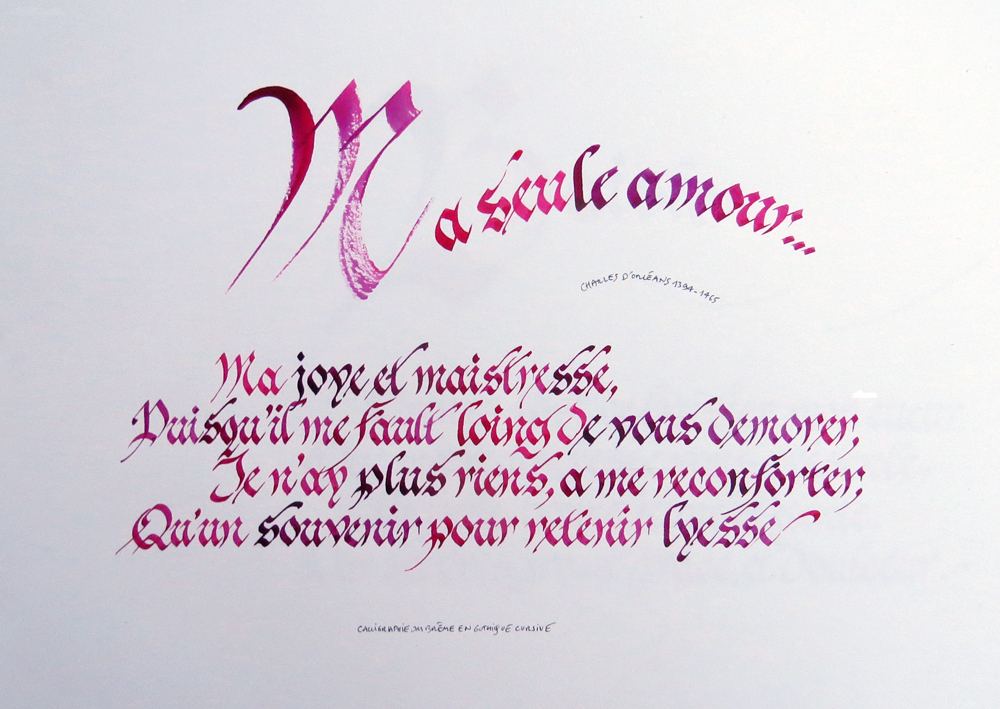 Ma seule amour...
CHARLES D'ORLÉANS 1394-1465
Ma joye et maistresse,
Puisqu'il me fault loing de vous demorer,
Je n'ay plus riens, a me reconforter,
Qu'un souvenir pour retenir lyesse
CALLIGRAPHIE JM BRÊME EN GOTHIQUE CURSIVE